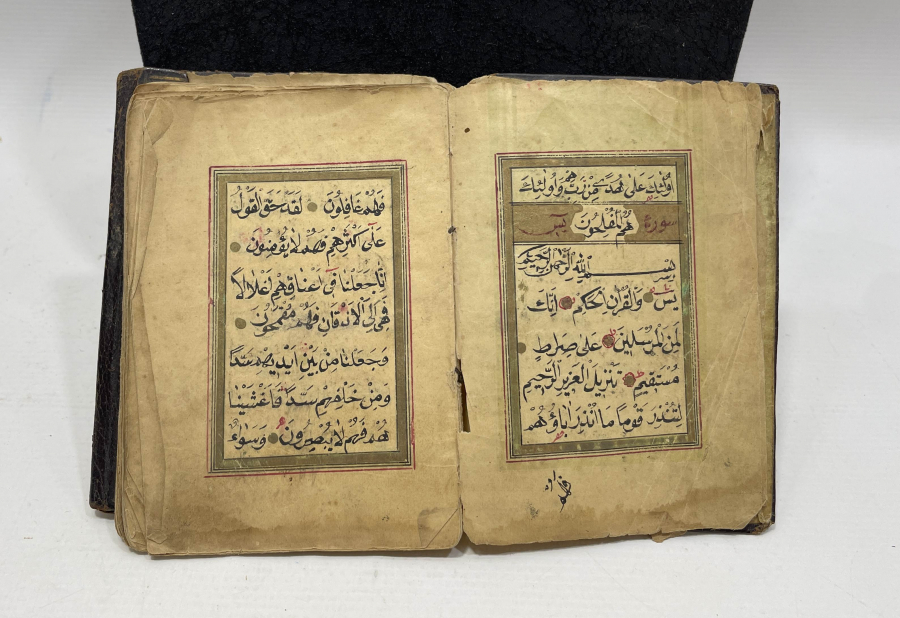 اُولٰئِكَ عَلٰى هُدًى مِنْ رَبِّهِمْ وَاُولٰئِكَ
سورة هُمُ الْمُفْلِحُونَ يس
بِسْمِ اللهِ الرَّحْمٰنِ الرَّحِيمِ
يٰسٓ وَالْقُرْاٰنِ الْحَكِيمِ اِنَّكَ
لَمِنَ الْمُرْسَلِينَ عَلٰى صِرَاطٍ
مُسْتَقِيمٍ تَنْزِيلَ الْعَزِيزِ الرَّحِيمِ
لِتُنْذِرَ قَوْمًا مَا اُنْذِرَ اٰبَاؤُهُمْ
فهم
فَهُمْ غَافِلُونَ لَقَدْ حَقَّ الْقَوْلُ
عَلٰى اَكْثَرِهِمْ فَهُمْ لَا يُؤْمِنُونَ
اِنَّا جَعَلْنَا فِي اَعْنَاقِهِمْ اَغْلَالًا
فَهِيَ اِلَى الْاَذْقَانِ فَهُمْ مُقْمَحُونَ
وَجَعَلْنَا مِنْ بَيْنِ اَيْدِيهِمْ سَدًّا
وَمِنْ خَلْفِهِمْ سَدًّا فَاَغْشَيْنَا
هُمْ فَهُمْ لَا يُبْصِرُونَ وَسَوَاءٌ